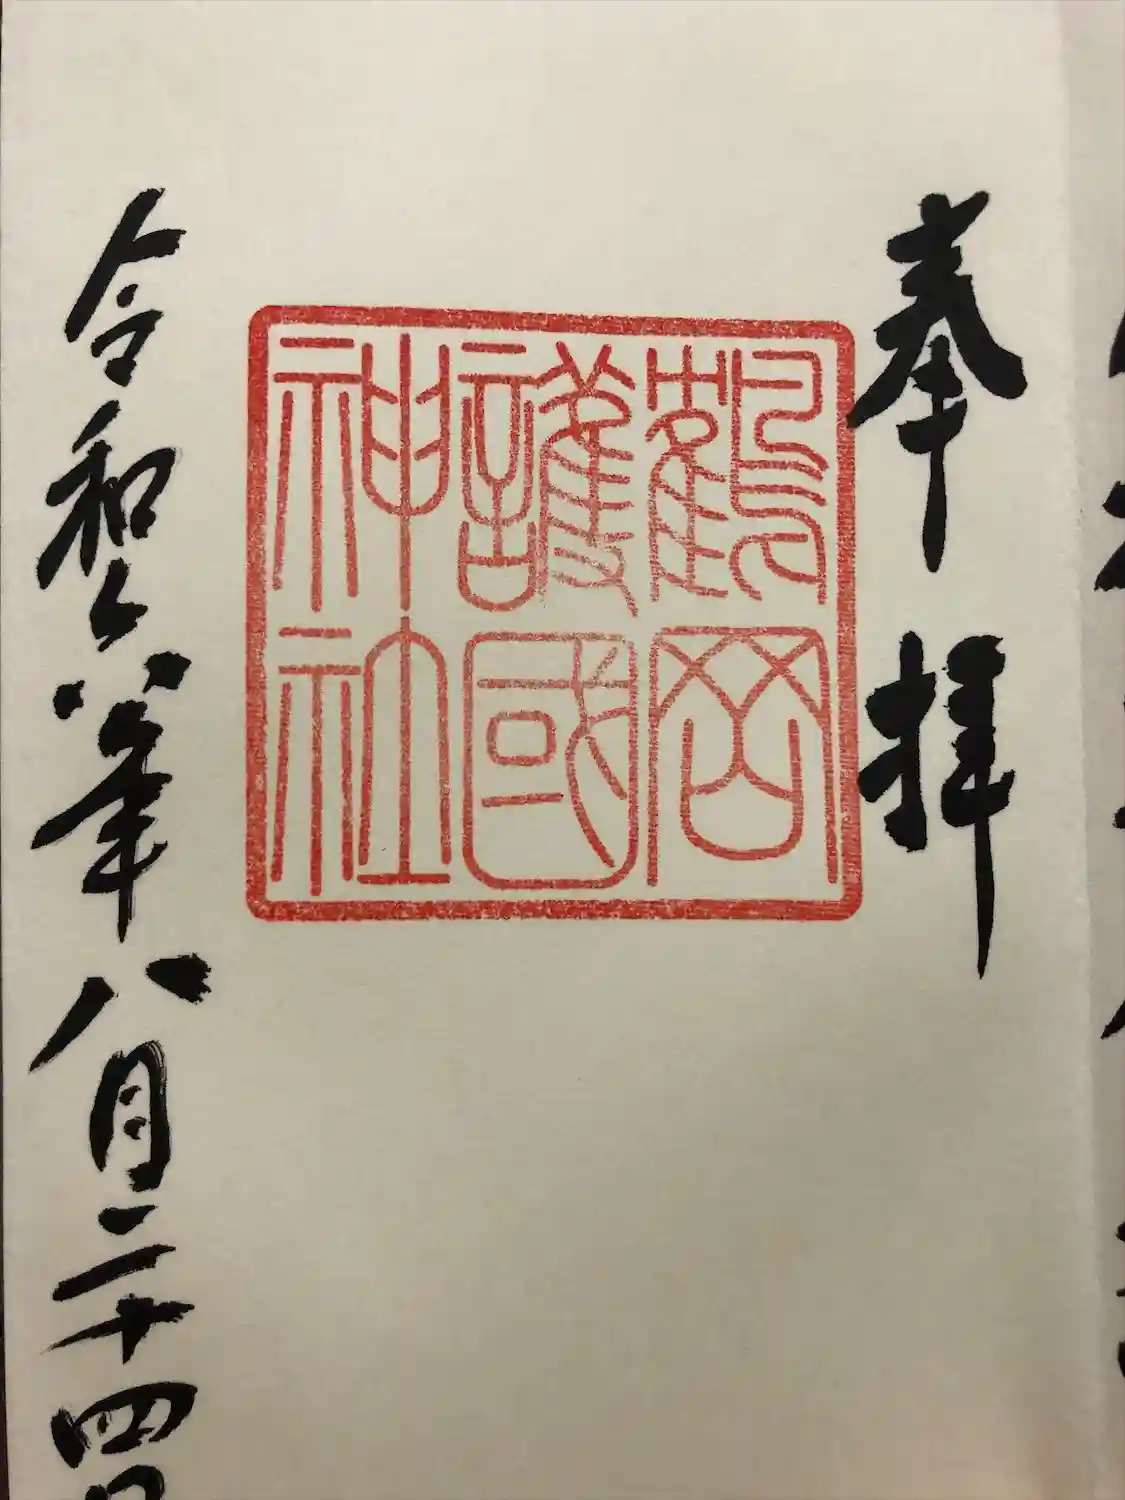 奉拝
鶴岡
護國
神社
令和六年八月二十四日